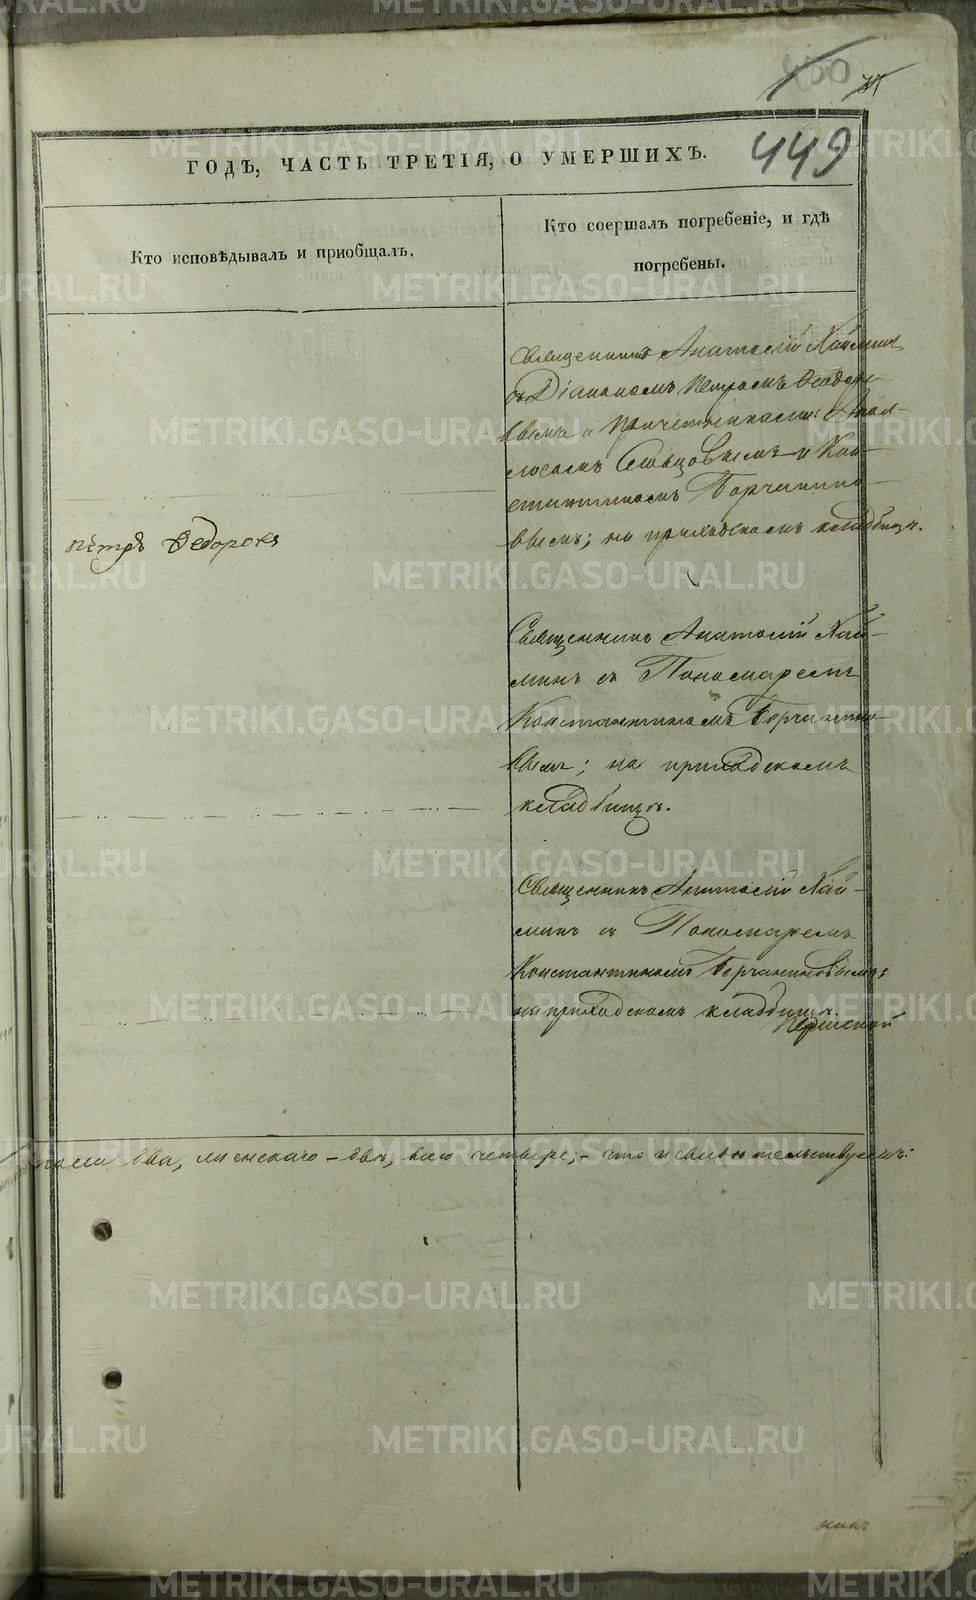 450
449
ГОДЪ, ЧАСТЬ ТРЕТІЯ, О УМЕРШИХЪ.
Кто исповѣдывалъ и приобщалъ.
Кто соершалъ погребеніе, и гдѣ
погребены.
Священникъ Анатолій Хаймин
съ Діакономъ Петромъ Ѳедоро-
вымъ и Причетниками:
и Кон-
стантиномъ Борчанино-
вымъ; на приходскомъ кладбищѣ.
Петръ Федоровъ
Священникъ Анатолій Хай-
минъ съ Пономаремъ
Константиномъ Борчанино-
вымъ; на приходскомъ
кладбищѣ.
Священникъ Анатолій Хай-
минъ съ Пономаремъ
Константиномъ Борчаниновымъ;
на приходскомъ кладбищѣ.
пола два, женскаго – двѣ, всего четыре; – что и свидѣтельствуемъ:
METRIKI.GASO-URAL.RU